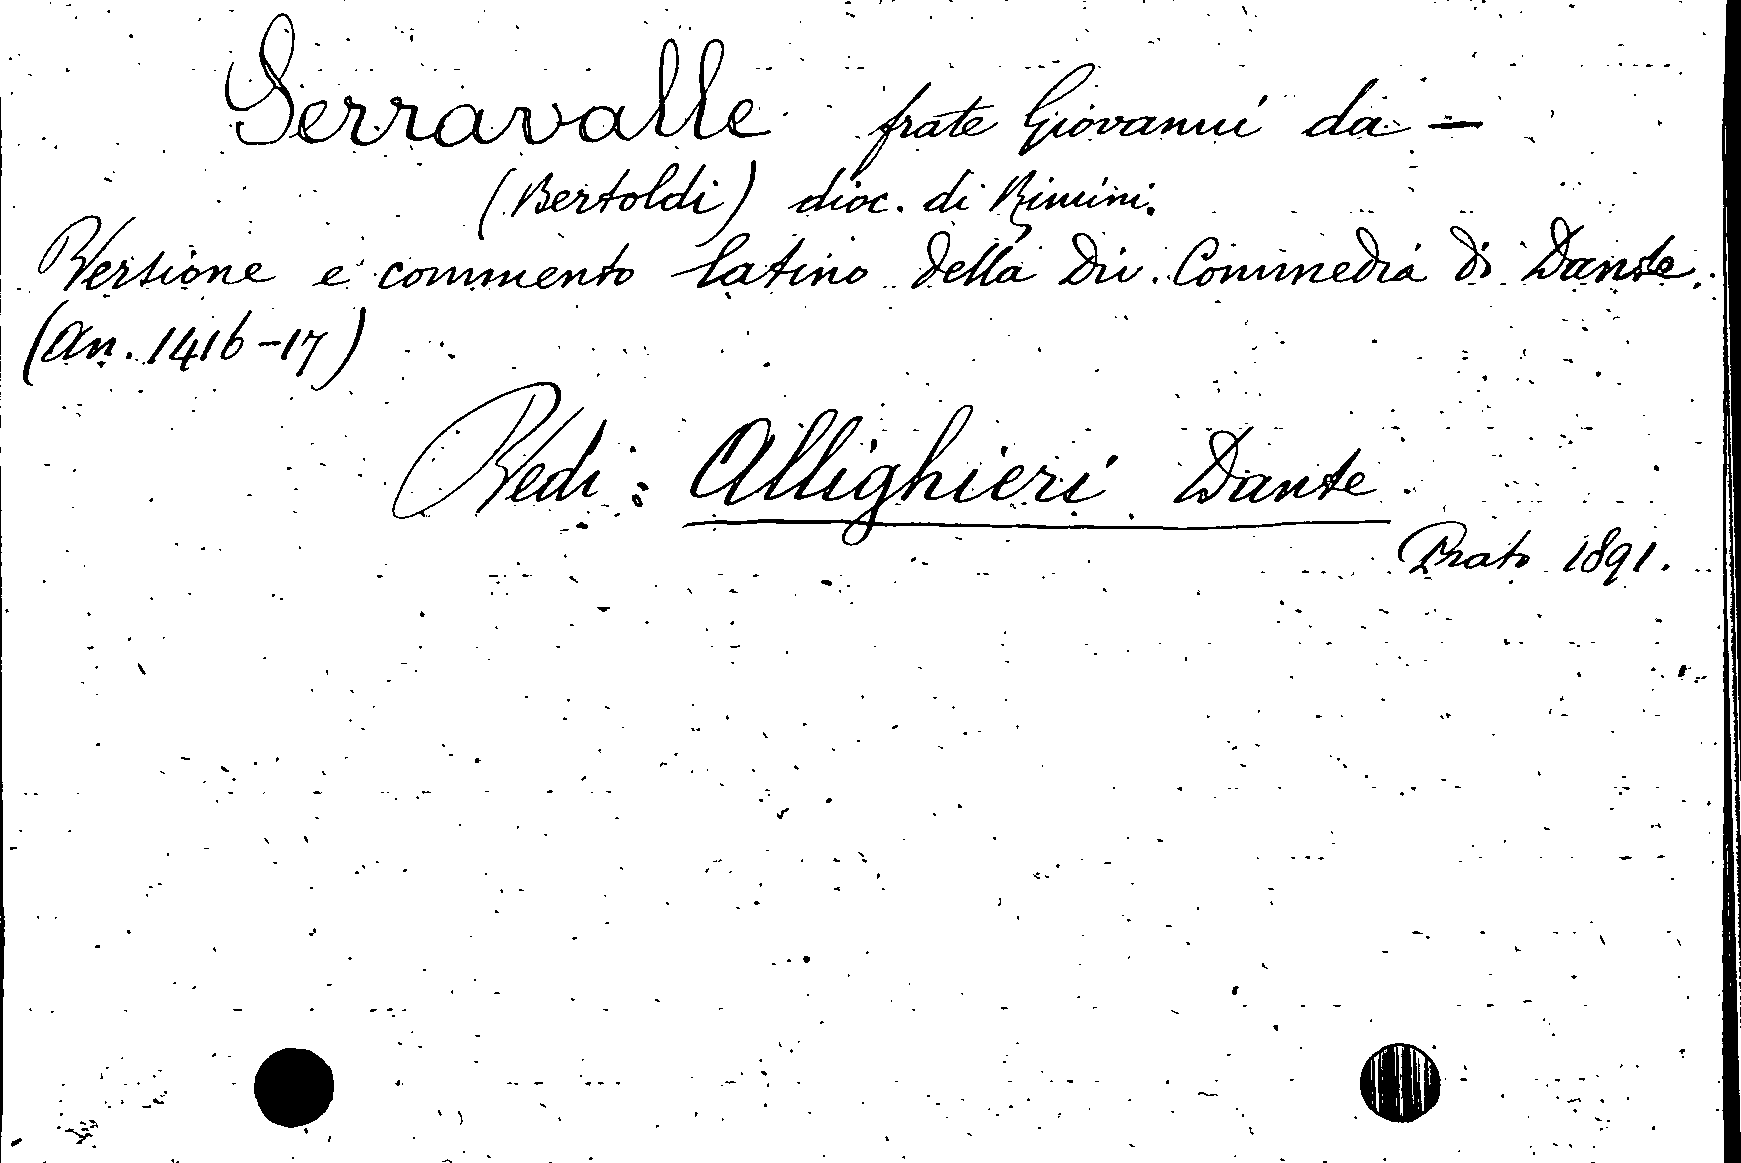 Serravalle frate Giovanni da —
(Bertoldi) dioc. di Rimini.
Versione e commento latino della Div. Commedia di Dante.
(An. 1416-17)
Vedi: Allighieri Dante
Prato 1891.